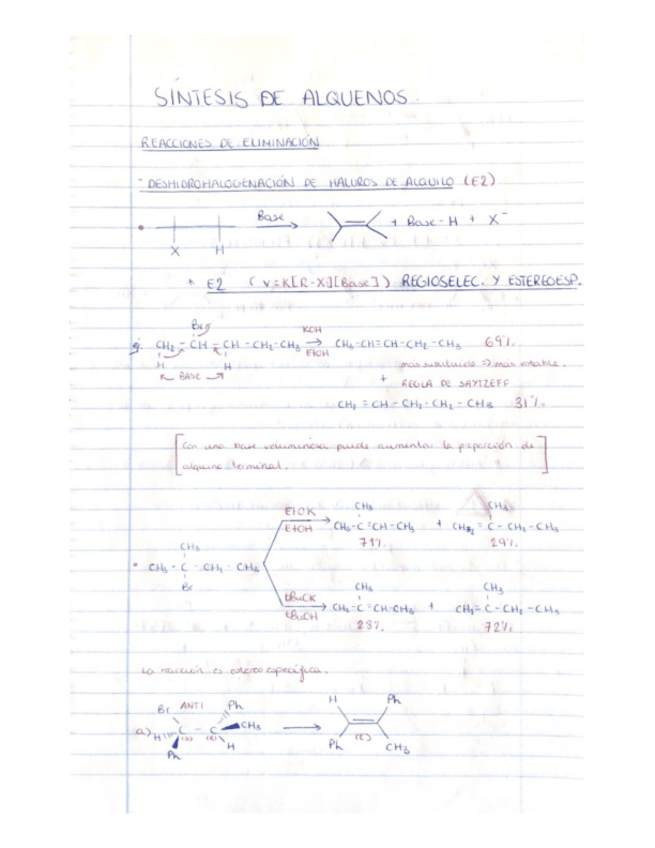 SÍNTESIS DE ALQUENOS.
REACCIONES DE ELIMINACIÓN
- DESHIDROHALOGENACIÓN DE HALUROS DE ALQUILO (E2)
Base
X H
+ Base-H + X⁻
* E2 (v=K[R-X][Base]) REGIOSELEC. Y ESTEREOESP.
Br
ej: CH₂ - CH - CH - CH₂ - CH₃ KOH EtOH CH₃-CH=CH-CH₂-CH₃ 69%
H H
BASE
más sustituido => más estable.
+ REGLA DE SAYTZEFF
CH₂ = CH - CH₂ - CH₂ - CH₃ 31%
[Con una base voluminosa puede aumentar la proporción de
alqueno terminal.]
CH₃ CH₃
EtOK EtOH CH₃-C=CH-CH₃ + CH₂=C-CH₂-CH₃
71% 29%
CH₃
CH₃ - C - CH₂ - CH₃
Br
CH₃ CH₃
tBuOK tBuOH CH₃-C=CH-CH₃ + CH₂=C-CH₂-CH₃
28% 72%
La reacción es estereoespecífica.
Br ANTI Ph
a) H C (S) - C (R) CH₃
Ph H
H Ph
(E)
Ph CH₃